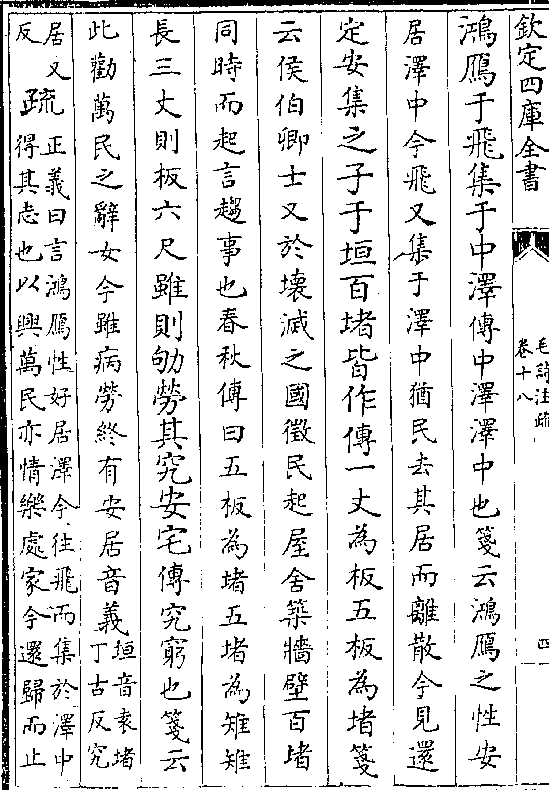 欽定四庫全書
毛詩注疏
卷十八
四
鴻鴈于飛集于中澤傳中澤澤中也箋云鴻鴈之性安
居澤中今飛又集于澤中猶民去其居而離散今見還
定安集之子于垣百堵皆作傳一丈為板五板為堵箋
云侯伯卿士又於壊滅之國徵民起屋舍築牆壁百堵
同時而起言趨事也春秋傳曰五板為堵五堵為雉雉
長三丈則板六尺雖則劬勞其究安宅傳究窮也箋云
此勸萬民之辭女今雖病勞終有安居音義垣音袁堵
丁古反究
居又
反
疏正義曰言鴻鴈性好居澤今往飛而集於澤中
得其志也以興萬民亦情樂處家今還歸而止